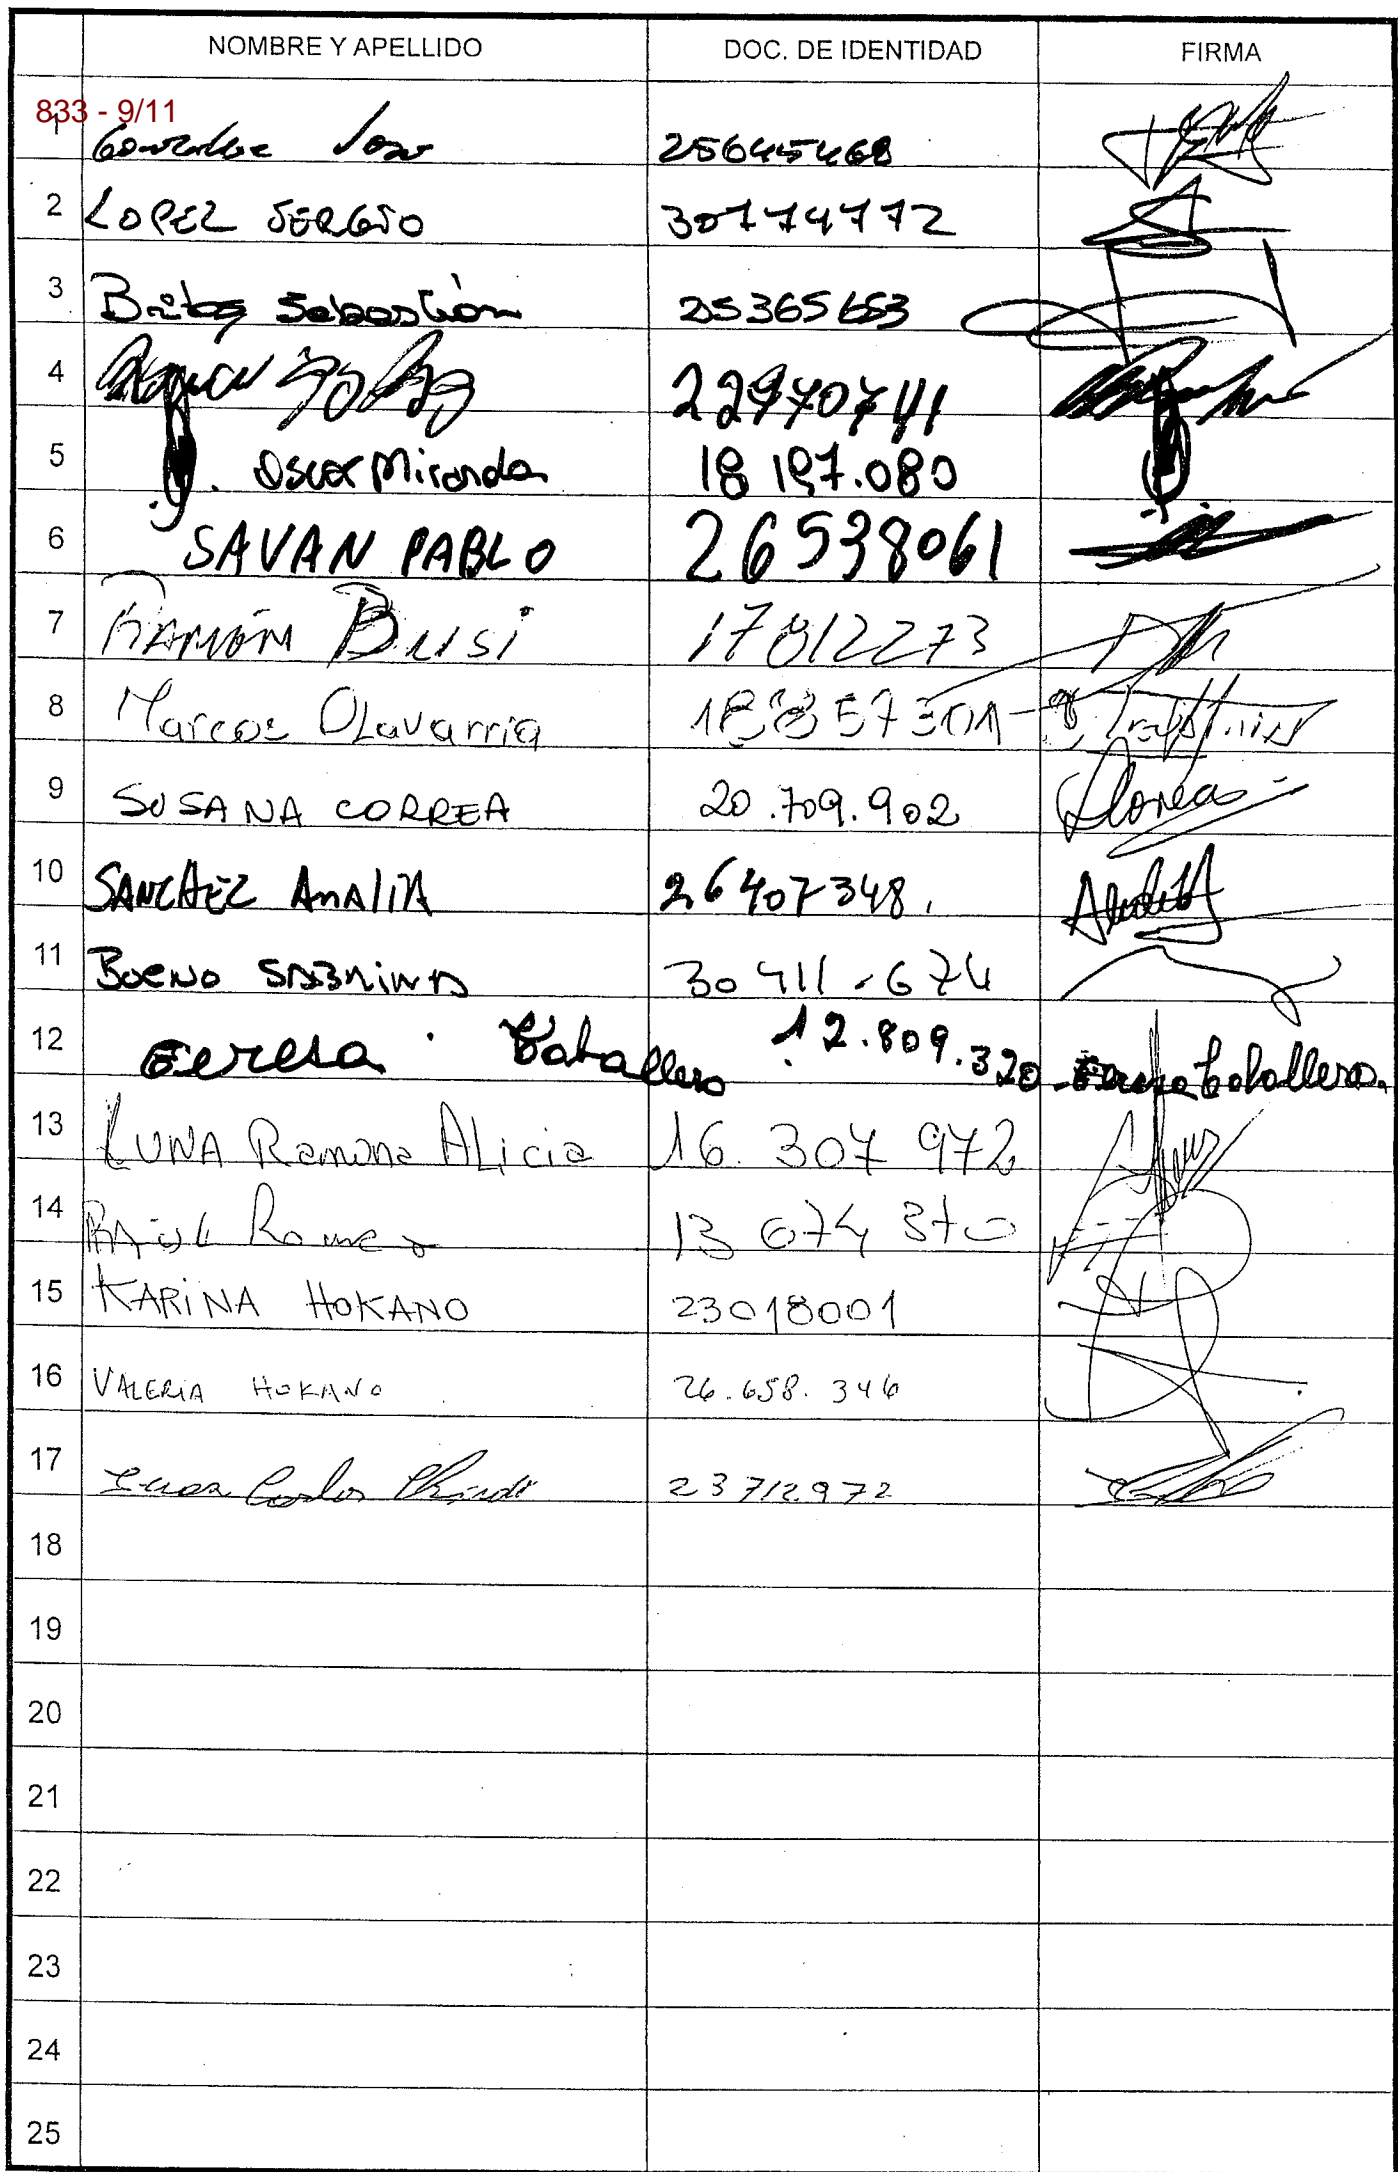 NOMBRE Y APELLIDO DOC. DE IDENTIDAD FIRMA
833 - 9/11
1 25645468
2 LOPEZ SERGIO 30774772
3 Sebastión 25365653
4 22970741
5 Oscar Miranda 18 197.080
6 SAVAN PABLO 26538061
7 RAMÓN BUSI 17812273
8 Marcos OLavarria 18857301
9 SUSANA CORREA 20.709.902
10 SANCHEZ AMALIA 26407348.
11 BUENO SABRINA 30 411.674
12 Teresa Caballero 12.809.320 Teresa Caballero.
13 LUNA Ramona ALicia 16.307 972
14 RAÚL Romero 13 074 370
15 KARiNA HOKANO 23018001
16 VALERiA HOKANO 26.658.346
17 Juan Carlos 23712972
18
19
20
21
22
23
24
25